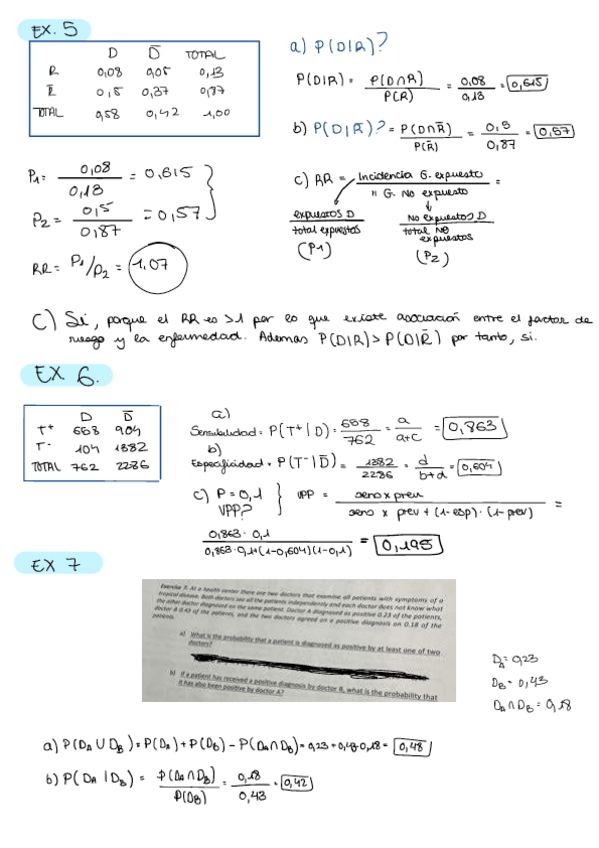 EX. 5
D D̄ TOTAL
R 0,08 0,05 0,13
R̄ 0,5 0,37 0,87
TOTAL 0,58 0,42 1,00
a) P(D|R)?
P(D|R) = P(D∩R) / P(R) = 0,08 / 0,13 = 0,615
b) P(D|R̄)? = P(D∩R̄) / P(R̄) = 0,5 / 0,87 = 0,57
P1 = 0,08 / 0,13 = 0,615
P2 = 0,5 / 0,87 = 0,57
RR = P1/P2 = 1,07
c) RR = Incidencia G. expuesto / " G. No expuesto =
expuestos D / total expuestos
(P1)
No expuestos D / total NO expuestos
(P2)
C) Si, porque el RR es >1 por lo que existe asociación entre el factor de
riesgo y la enfermedad. Ademas P(D|R) > P(D|R̄) por tanto, si.
EX 6.
D D̄
T+ 658 904
T- 104 1382
TOTAL 762 2286
a)
Sensibilidad = P(T+|D) = 658 / 762 = a / a+c = 0,863
b)
Especificidad = P(T-|D̄) = 1382 / 2286 = d / b+d = 0,604
c) P = 0,1
VPP?
VPP = sens x prev / sens x prev + (1-esp)·(1-prev) =
0,863·0,1 / 0,863·0,1+(1-0,604)(1-0,1) = 0,195
EX 7
Exercise 7. At a health center there are two doctors that examine all patients with symptoms of a
tropical disease. Both doctors see all the patients independently and each doctor does not know what
the other doctor diagnosed on the same patient. Doctor A diagnosed as positive 0.23 of the patients,
doctor B 0.43 of the patients, and the two doctors agreed on a positive diagnosis on 0.18 of the
patients.
a) What is the probability that a patient is diagnosed as positive by at least one of two
doctors?
b) If a patient has received a positive diagnosis by doctor B, what is the probability that
it has also been positive by doctor A?
DA = 0,23
DB = 0,43
DA∩DB = 0,18
a) P(DA∪DB) = P(DA) + P(DB) - P(DA∩DB) = 0,23+0,43-0,18 = 0,48
b) P(DA|DB) = P(DA∩DB) / P(DB) = 0,18 / 0,43 = 0,42